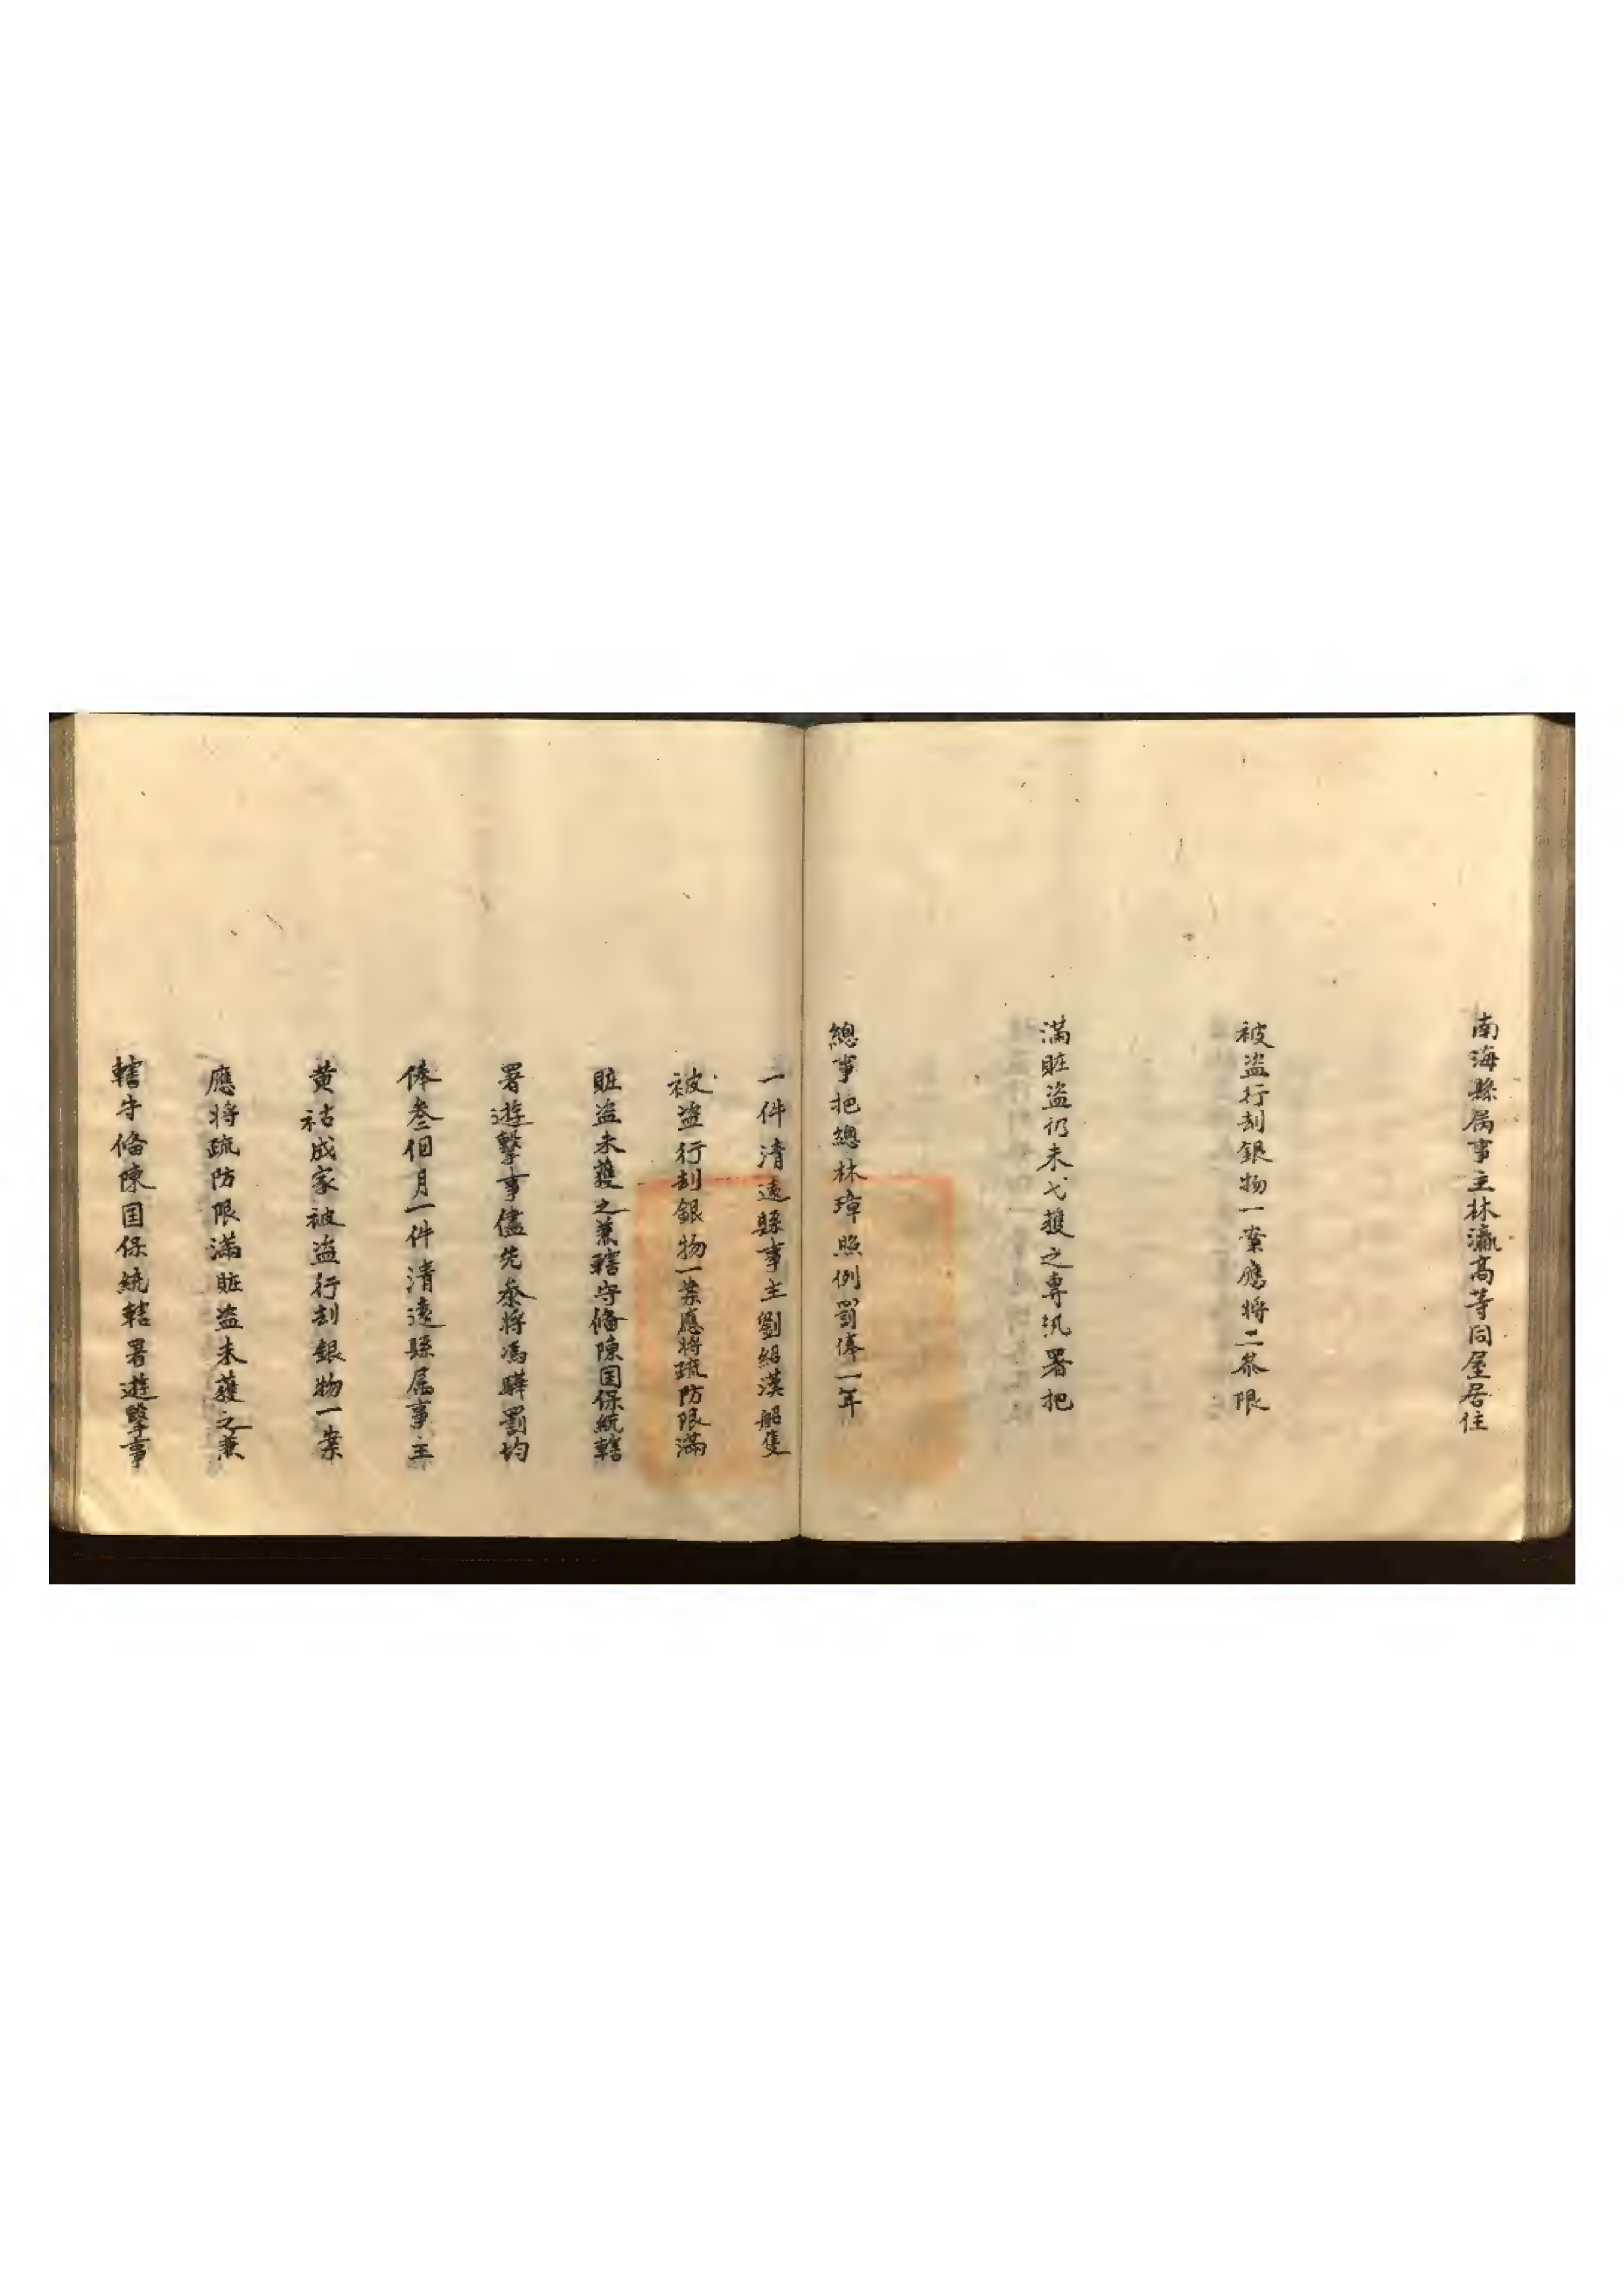 南海縣属事主林瀛高等同屋居住
被盗行刮銀物一案應將二叅限
滿賍盗仍未弋獲之專汛署把
總事把總林璋照例罰俸一年
一件清遠縣事主劉紹漢船隻
被盗行刮銀物一案應將疏防限滿
賍盗未獲之兼轄守俻陳国保統轄
署遊擊事儘先叅將馮驊罰均
俸叁個月一件清遠縣属事主
黄祜成家被盗行刮銀物一案
應將疏防限滿賍盗未獲之兼
轄守俻陳国保統轄署遊擊事